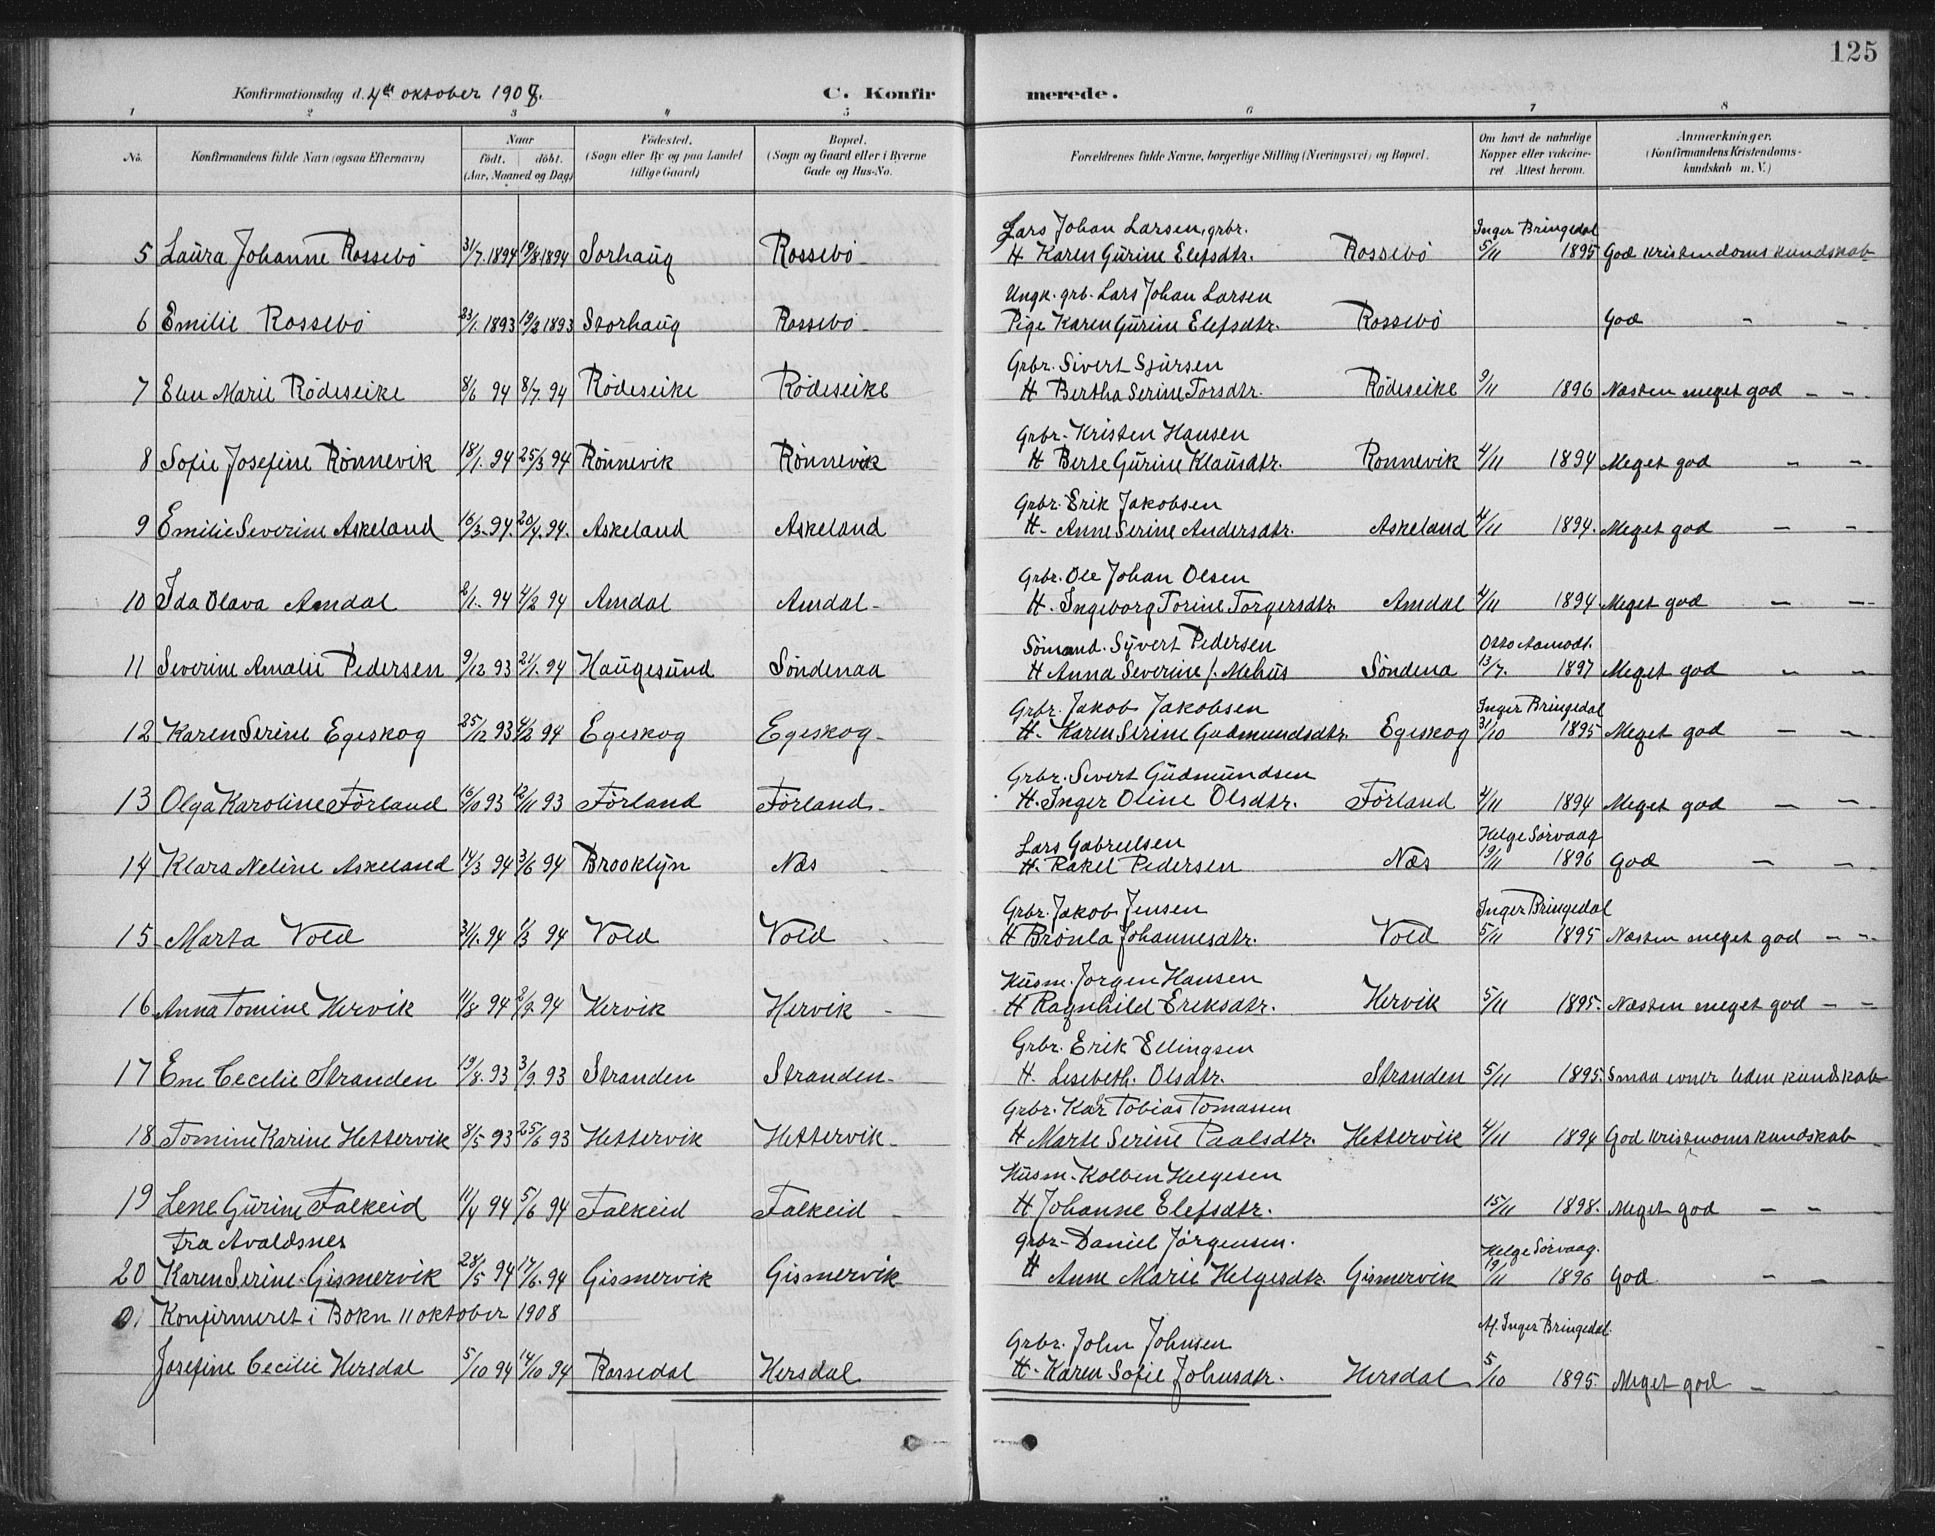 125
Konfirmationsdag d. 4de oktober 1908.
C. Konfirmerede.
1 2 3 4 5 6 7 8
No.
Konfirmandens fulde Navn (ogsaa Efternavn)
Naar født. døbt. (Aar, Maaned og Dag)
Fødested. (Sogn eller By og paa Landet tillige Gaard)
Bopæl. (Sogn og Gaard eller i Byerne Gade og Hus-No.
Forældrenes fulde Navne, borgerlige Stilling (Næringsvei) og Bopæl.
Om havt de naturlige Kopper eller vakcineret Attest herom.
Anmærkninger. (Konfirmandens Kristendomskundskab m. V.)
Lars Johan Larsen, grbr. Inger Bringedal
5 Laura Johanne Rossebö 31/7.1894 19/8.1894 Sorhaug Rossebö H Karen Gurine Elefsdtr. Rossebö 5/11 1895 God kristendomskundskab
Ungk. grb. Lars Johan Larsen
6 Emilie Rossebö 23/1.1893 19/3 1893 Storhaug Rossebö Pige Karen Gurine Elefsdtr. Rossebö God – –
Grbr. Sivert Sjursen
7 Elen Marie Rödeseike 8/6 94 8/7 94 Rödeseike Rödeseike H Bertha Serine Torsdtr. Rödeseike 9/11 1896 Næsten meget god – –
Grbr. Kristen Hansen
8 Sofie Josefine Rönnevik 18/1. 94 25/3 94 Rönnevik Rönnevik H Berte Gurine Klausdtr. Ronnevik 4/11 1894 Meget god – –
Grbr. Erik Jakobsen
9 Emilie Severine Askeland 16/3. 94. 20/4. 94. Askeland Askeland H. Anne Serine Andersdtr. Askeland 4/11 1894. Meget god – –
Grbr. Ole Johan Olsen
10 Ida Olava Amdal 2/1. 94 4/2 94 Amdal Amdal H. Ingeborg Torine Torgersdtr. Amdal 4/11 1894 Meget god – –
Sömand. Syvert Pedersen Otto Aamodt.
11 Severine Amalie Pedersen 9/12 93 21/1. 94 Haugesund Söndenaa H Anna Severine f. Mehus Söndena 13/7. 1897 Meget god – –
Grbr. Jakob Jakobsen Inger Bringedal
12 Karen Serine Egeskog 25/12 93 4/2 94 Egeskog Egeskog H. Karen Serine Gudmundsdtr. Egeskog 31/10 1895 Meget god – –
Grbr. Sivert Gudmundsen
13 Olga Karoline Förland 16/10 93 12/11 93 Förland Förland H. Inger Oline Olsdtr. Förland 4/11 1894 Meget god – –
Lars Gabrielsen Helge Sørvaag
14 Klara Neline Askeland 14/3 94 3/6 94 Brooklyn Næs H. Rakel Pedersen Næs 19/11 1896 God – –
Grbr. Jakob Jensen Inger Bringedal
15 Marta Vold 3/1. 94 1/3 94 Vold Vold H Brönla Johannesdtr. Vold 5/11 1895 Næsten meget god – –
Husm. Jorgen Hansen
16 Anna Tomine Hervik 11/8 94 2/9. 94 Hervik Hervik H Ragnhild Eriksdtr. Hervik 5/11 1895. Næsten meget god – –
Grbr. Erik Ellingsen
17 Ene Cecelie Stranden 19/8. 93 3/9. 93 Stranden Stranden H. Lisebeth. Olsdtr. Stranden 5/11 1895. Smaa evner liden kundskab
Grbr. Tobias Tomassen
18 Tomine Karine Hettervik 8/5 93 25/6 93 Hettervik Hettervik H Marte Serine Paalsdtr. Hettervik 4/11 1894 God kristendomskundskab
Husm. Kolben Helgesen
19 Lene Gurine Falkeid 11/4 94 5/6 94 Falkeid Falkeid H Johanne Elefsdtr. 15/11 1898. Meget god – –
Fra Avaldsnes Grbr. Daniel Jørgensen. Helge Sørvaag.
20 Karen Serine Gismervik 28/5 94 17/6. 94 Gismervik Gismervik H Anne Marie Helgesdtr. Gismervik 19/11 1896 God – –
Konfirmeret i Bokn 11 oktober 1908
Grbr. John Johnsen Af. Inger Bringedal.
Josefine Cecilie Hersdal 5/10 94 14/10 94 Rossedal Hersdal H. Karen Sofie Johnsdtr. Hersdal 5/10 1895. Meget god – –